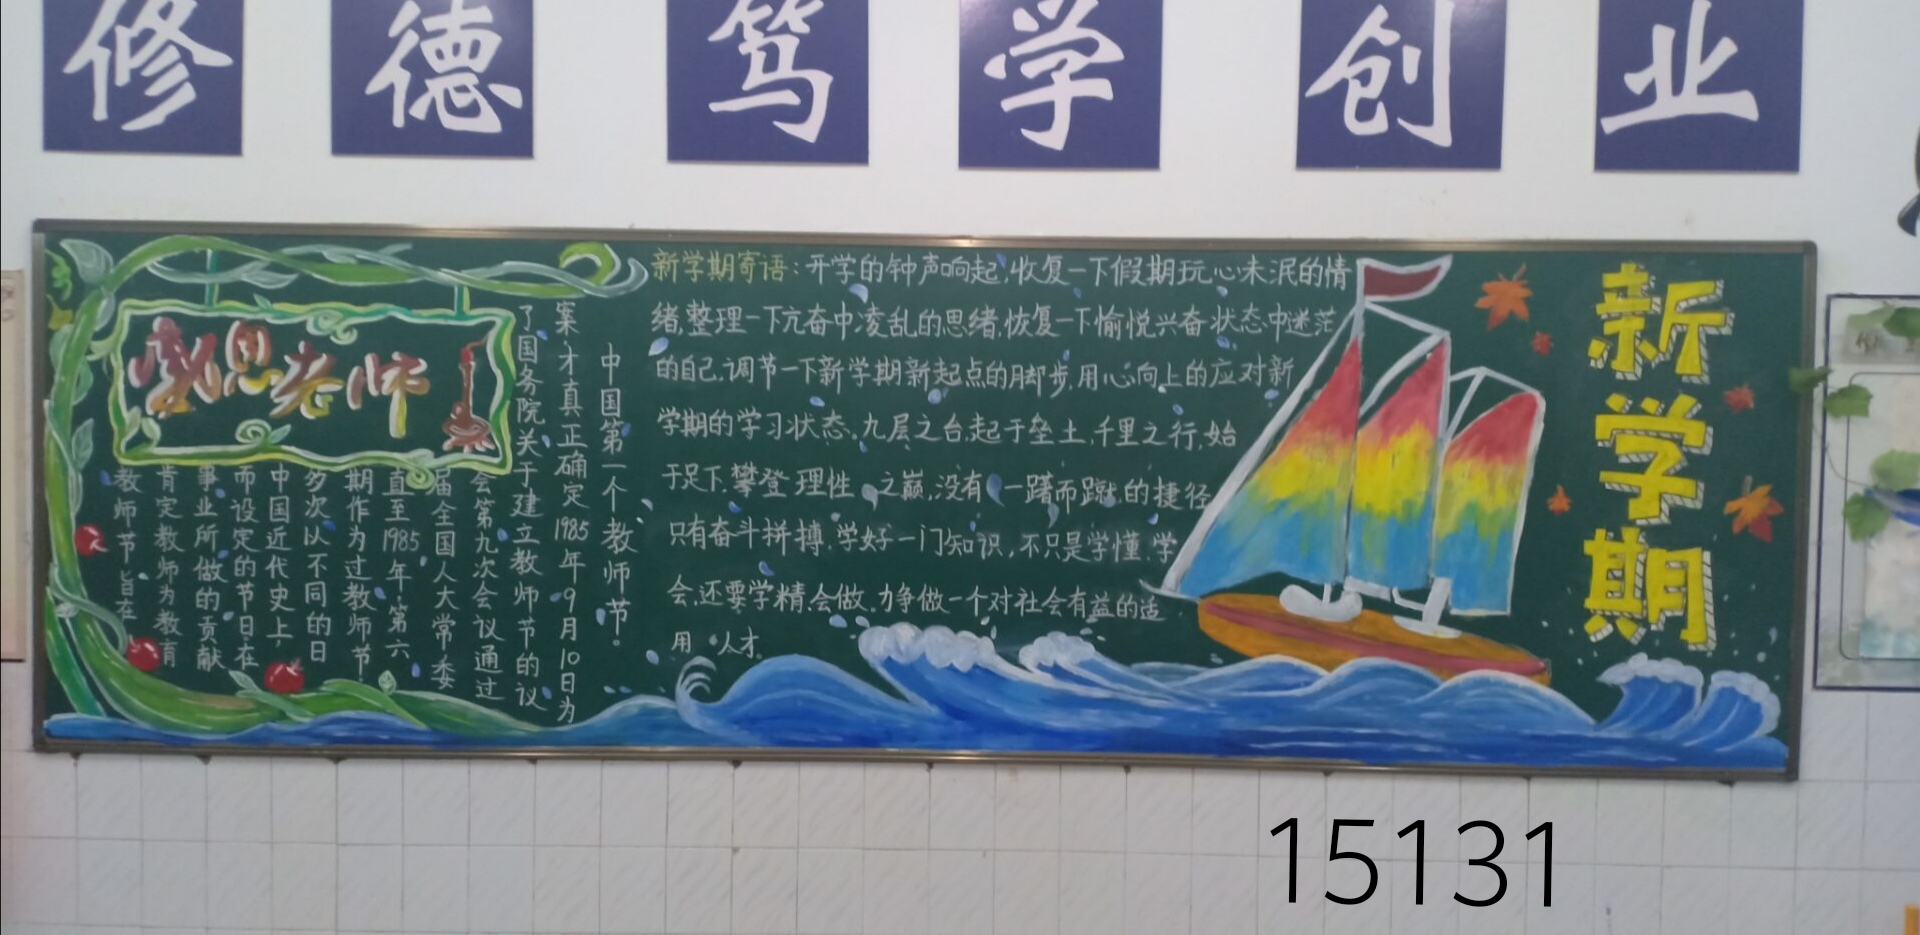 修德笃学创业
感恩老师
新学期寄语:开学的钟声响起,收复一下假期玩心未泯的情
绪,整理一下亢奋中凌乱的思绪,恢复一下愉悦兴奋状态中迷茫
的自己,调节一下新学期新起点的脚步,用心向上的应对新
学期的学习状态。九层之台,起于垒土,千里之行,始
于足下,攀登理性之巅,没有一蹴而蹴的捷径
只有奋斗拼搏,学好一门知识,不只是学懂,学
会,还要学精,会做,力争做一个对社会有益的适
用人才。
中国第一个教师节。
案,才真正确定1985年9月10日为
了国务院关于建立教师节的议
会第九次会议通过
届全国人大常委
直至1985年,第六
期作为过教师节
多次以不同的日
中国近代史上,
而设定的节日,在
事业所做的贡献
肯定教师为教育
教师节,旨在
新学期
15131